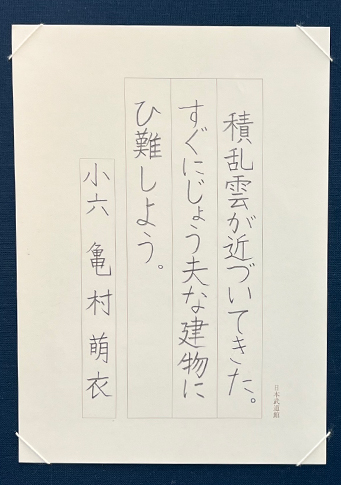 積乱雲が近づいてきた。
すぐにじょう夫な建物に
ひ難しよう。
小六 亀村萌衣
日本武道館